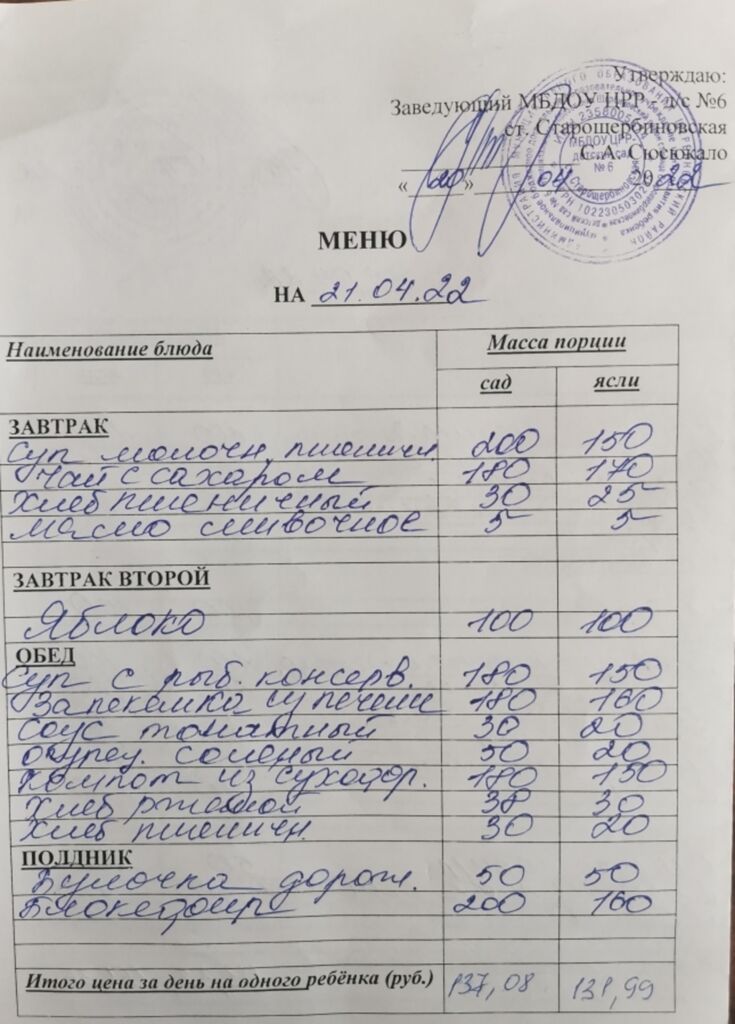 Утверждаю:
Заведующий МБДОУ ЦРР - д/с №6
ст. Старощербиновская
С.А. Сюсюкало
« 20 » 04 2022
МЕНЮ
НА 21.04.22
Наименование блюда Масса порции
сад ясли
ЗАВТРАК
Суп молочн. пшеничн. 200 150
Чай с сахаром 180 170
Хлеб пшеничный 30 25
масло сливочное 5 5
ЗАВТРАК ВТОРОЙ
Яблоко 100 100
ОБЕД
Суп с рыб. консерв. 180 150
Запеканка с/ печени 180 160
Соус томатный 30 20
огурец. соленый 50 20
Компот из сухофр. 180 150
Хлеб ржаной 38 30
Хлеб пшеничн. 30 20
ПОЛДНИК
Булочка дорож. 50 50
Биокефир 200 160
Итого цена за день на одного ребёнка (руб.) 137,08 131,99